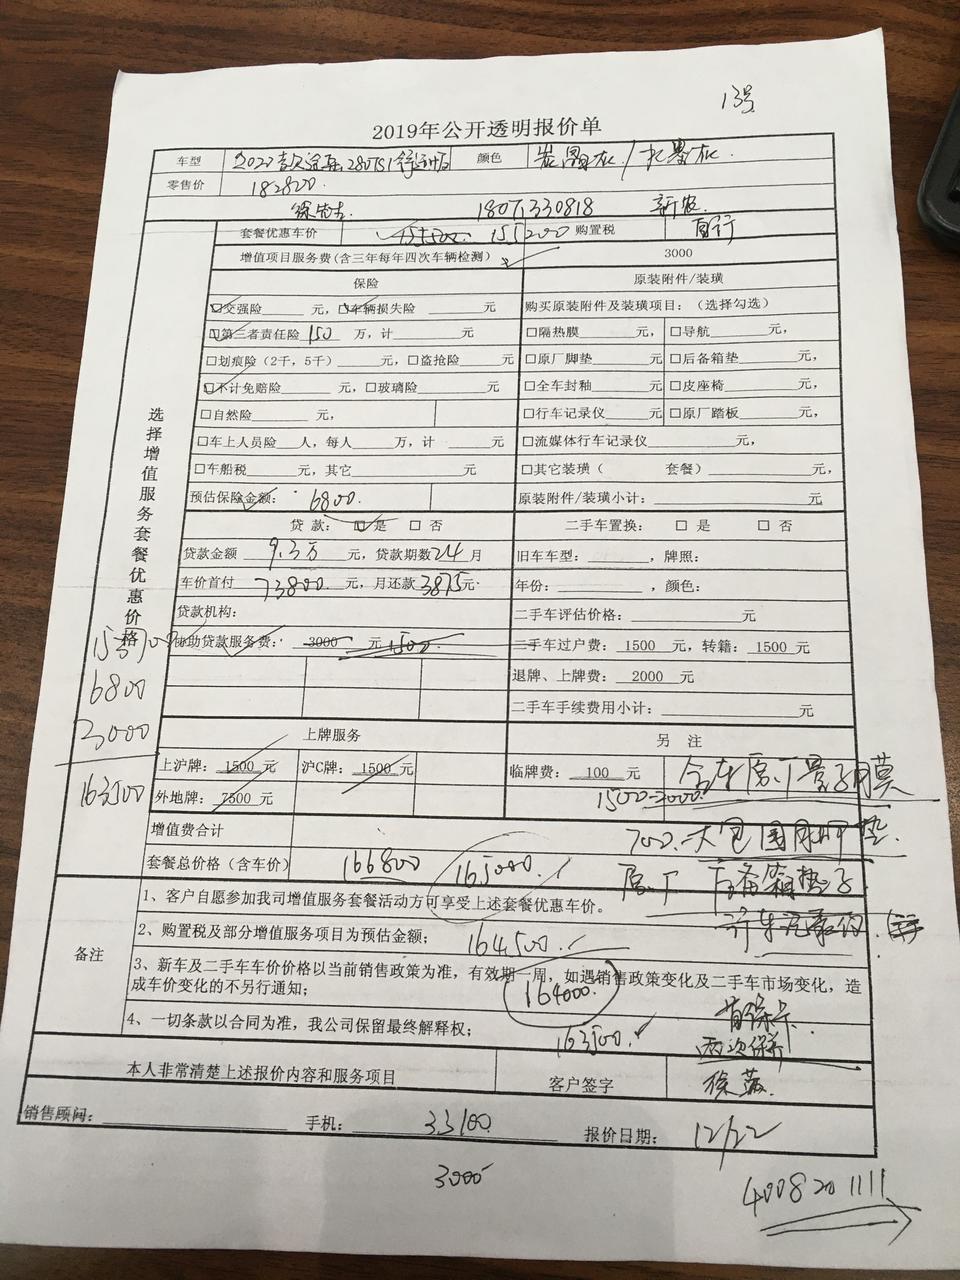 13号
2019年公开透明报价单
车型 2022款途岳280TSI舒适版 颜色 炭晶灰/
零售价 182800.
徐先生. 18071330818 新农.
套餐优惠车价 155500 155200 购置税 自行
增值项目服务费(含三年每年四次车辆检测) 3000
保险 原装附件/装璜
☑交强险 元, ☑车辆损失险 元 购买原装附件及装璜项目:(选择勾选)
☑第三者责任险 150 万, 计 元 □隔热膜 元, □导航 元,
□划痕险(2千, 5千) 元, □盗抢险 元 □原厂脚垫 元 □后备箱垫 元,
☑不计免赔险 元, □玻璃险 元 □全车封釉 元 □皮座椅 元,
□自然险 元, □行车记录仪 元 □原厂踏板 元,
□车上人员险 人, 每人 万, 计 元 □流媒体行车记录仪 元,
□车船税 元, 其它 元 □其它装璜( 套餐) 元,
预估保险金额: 6800. 原装附件/装璜小计: 元
选择增值服务套餐优惠价格
贷 款: ☑ 是 □ 否 二手车置换: □ 是 □ 否
贷款金额 9.3万 元, 贷款期数 24 月 旧车车型: , 牌照:
车价首付 73800 元, 月还款 3875 元 年份: , 颜色:
贷款机构: 二手车评估价格: 元
协助贷款服务费: 3000 元 1500 二手车过户费: 1500 元, 转籍: 1500 元
退牌、上牌费: 2000 元
二手车手续费用小计: 元
153700
6800
3000
163500
上牌服务 另 注
上沪牌: 1500 元 沪C牌: 1500 元 临牌费: 100 元 全车原厂量子膜
外地牌: 7500 元 1500-2000.
增值费合计 700.大包围脚垫.
套餐总价格(含车价) 166800 165000. 原厂后备箱垫子
行车记录仪.
备注
1、客户自愿参加我司增值服务套餐活动方可享受上述套餐优惠车价。
2、购置税及部分增值服务项目为预估金额; 164,500.
3、新车及二手车车价价格以当前销售政策为准, 有效期一周, 如遇销售政策变化及二手车市场变化, 造
成车价变化的不另行通知; 164000.
4、一切条款以合同为准, 我公司保留最终解释权; 163500. 首保卡.
两次保养
本人非常清楚上述报价内容和服务项目 客户签字
销售顾问: 手机: 33100. 报价日期: 12/22
3000
4008201111